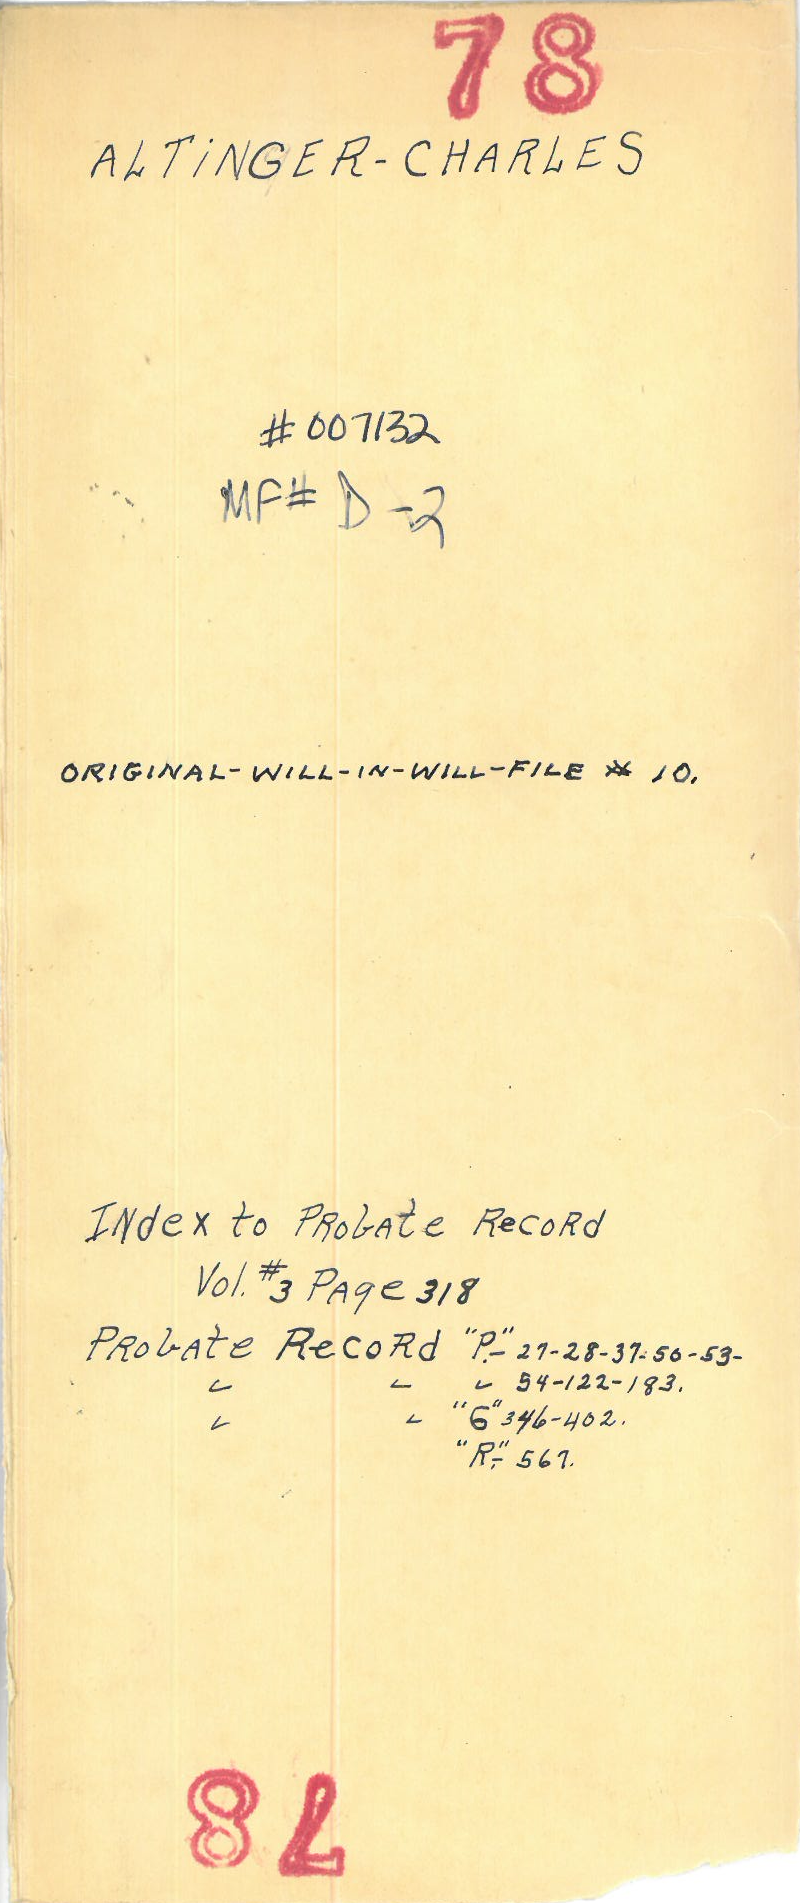 78
ALTiNGER-CHARLES
# 007132
MF# D-2
ORIGINAL-WILL-IN-WILL-FILE # 10.
INdex to PRobAte RecoRd
Vol. #3 PAge 318
PRobAte RecoRd "P."- 27-28-37-50-53-
" " " 54-122-183.
" " "G" 346-402.
"R"- 567.
78